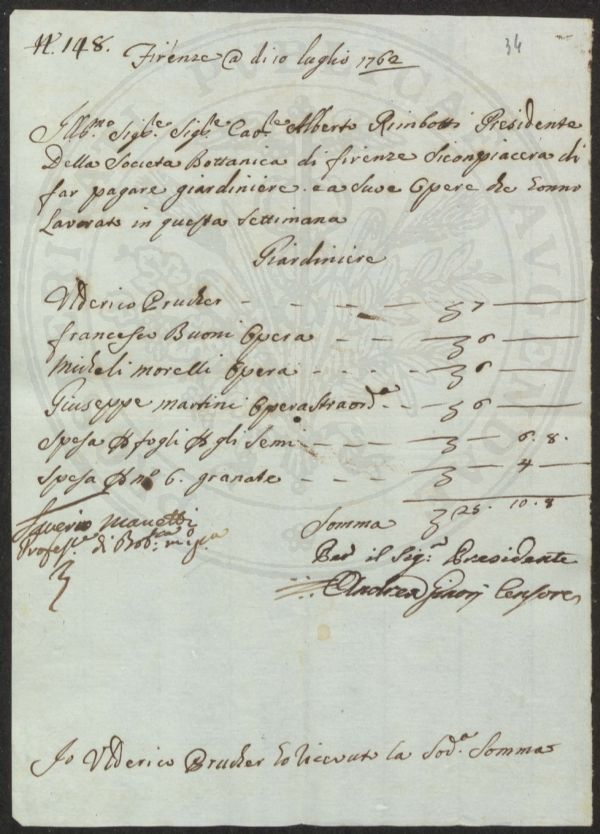 N. 148.
34
Firenze @ di 10 luglio 1762
Illmo Sigre Sigre Cavre Alberto Rimbotti Presidente
Della Societa Bottanica di firenze Siconpiacera di
far pagare giardiniere e a Sue Opere che Conno
Lavorato in questa Settimana
Giardiniere
Ulderico Prucher - - - - — 7 —
francesco Buoni Opera - - - — 6 —
Micheli morelli Opera - - - — 6 —
Giuseppe martini Opera Straorda - - — 6 —
Spesa P fogli P gli Semi - - - - — 6. 8.
Spesa P no 6. granate - - - - — 4 —
Somma 25. 10. 8
Saverio Manetti
Profess.e di Bot.ca
Per il Sigr. Presidente
Andrea Ginori Censore
Io Ulderico Prucher ho ricevuto la Sod.a Somma